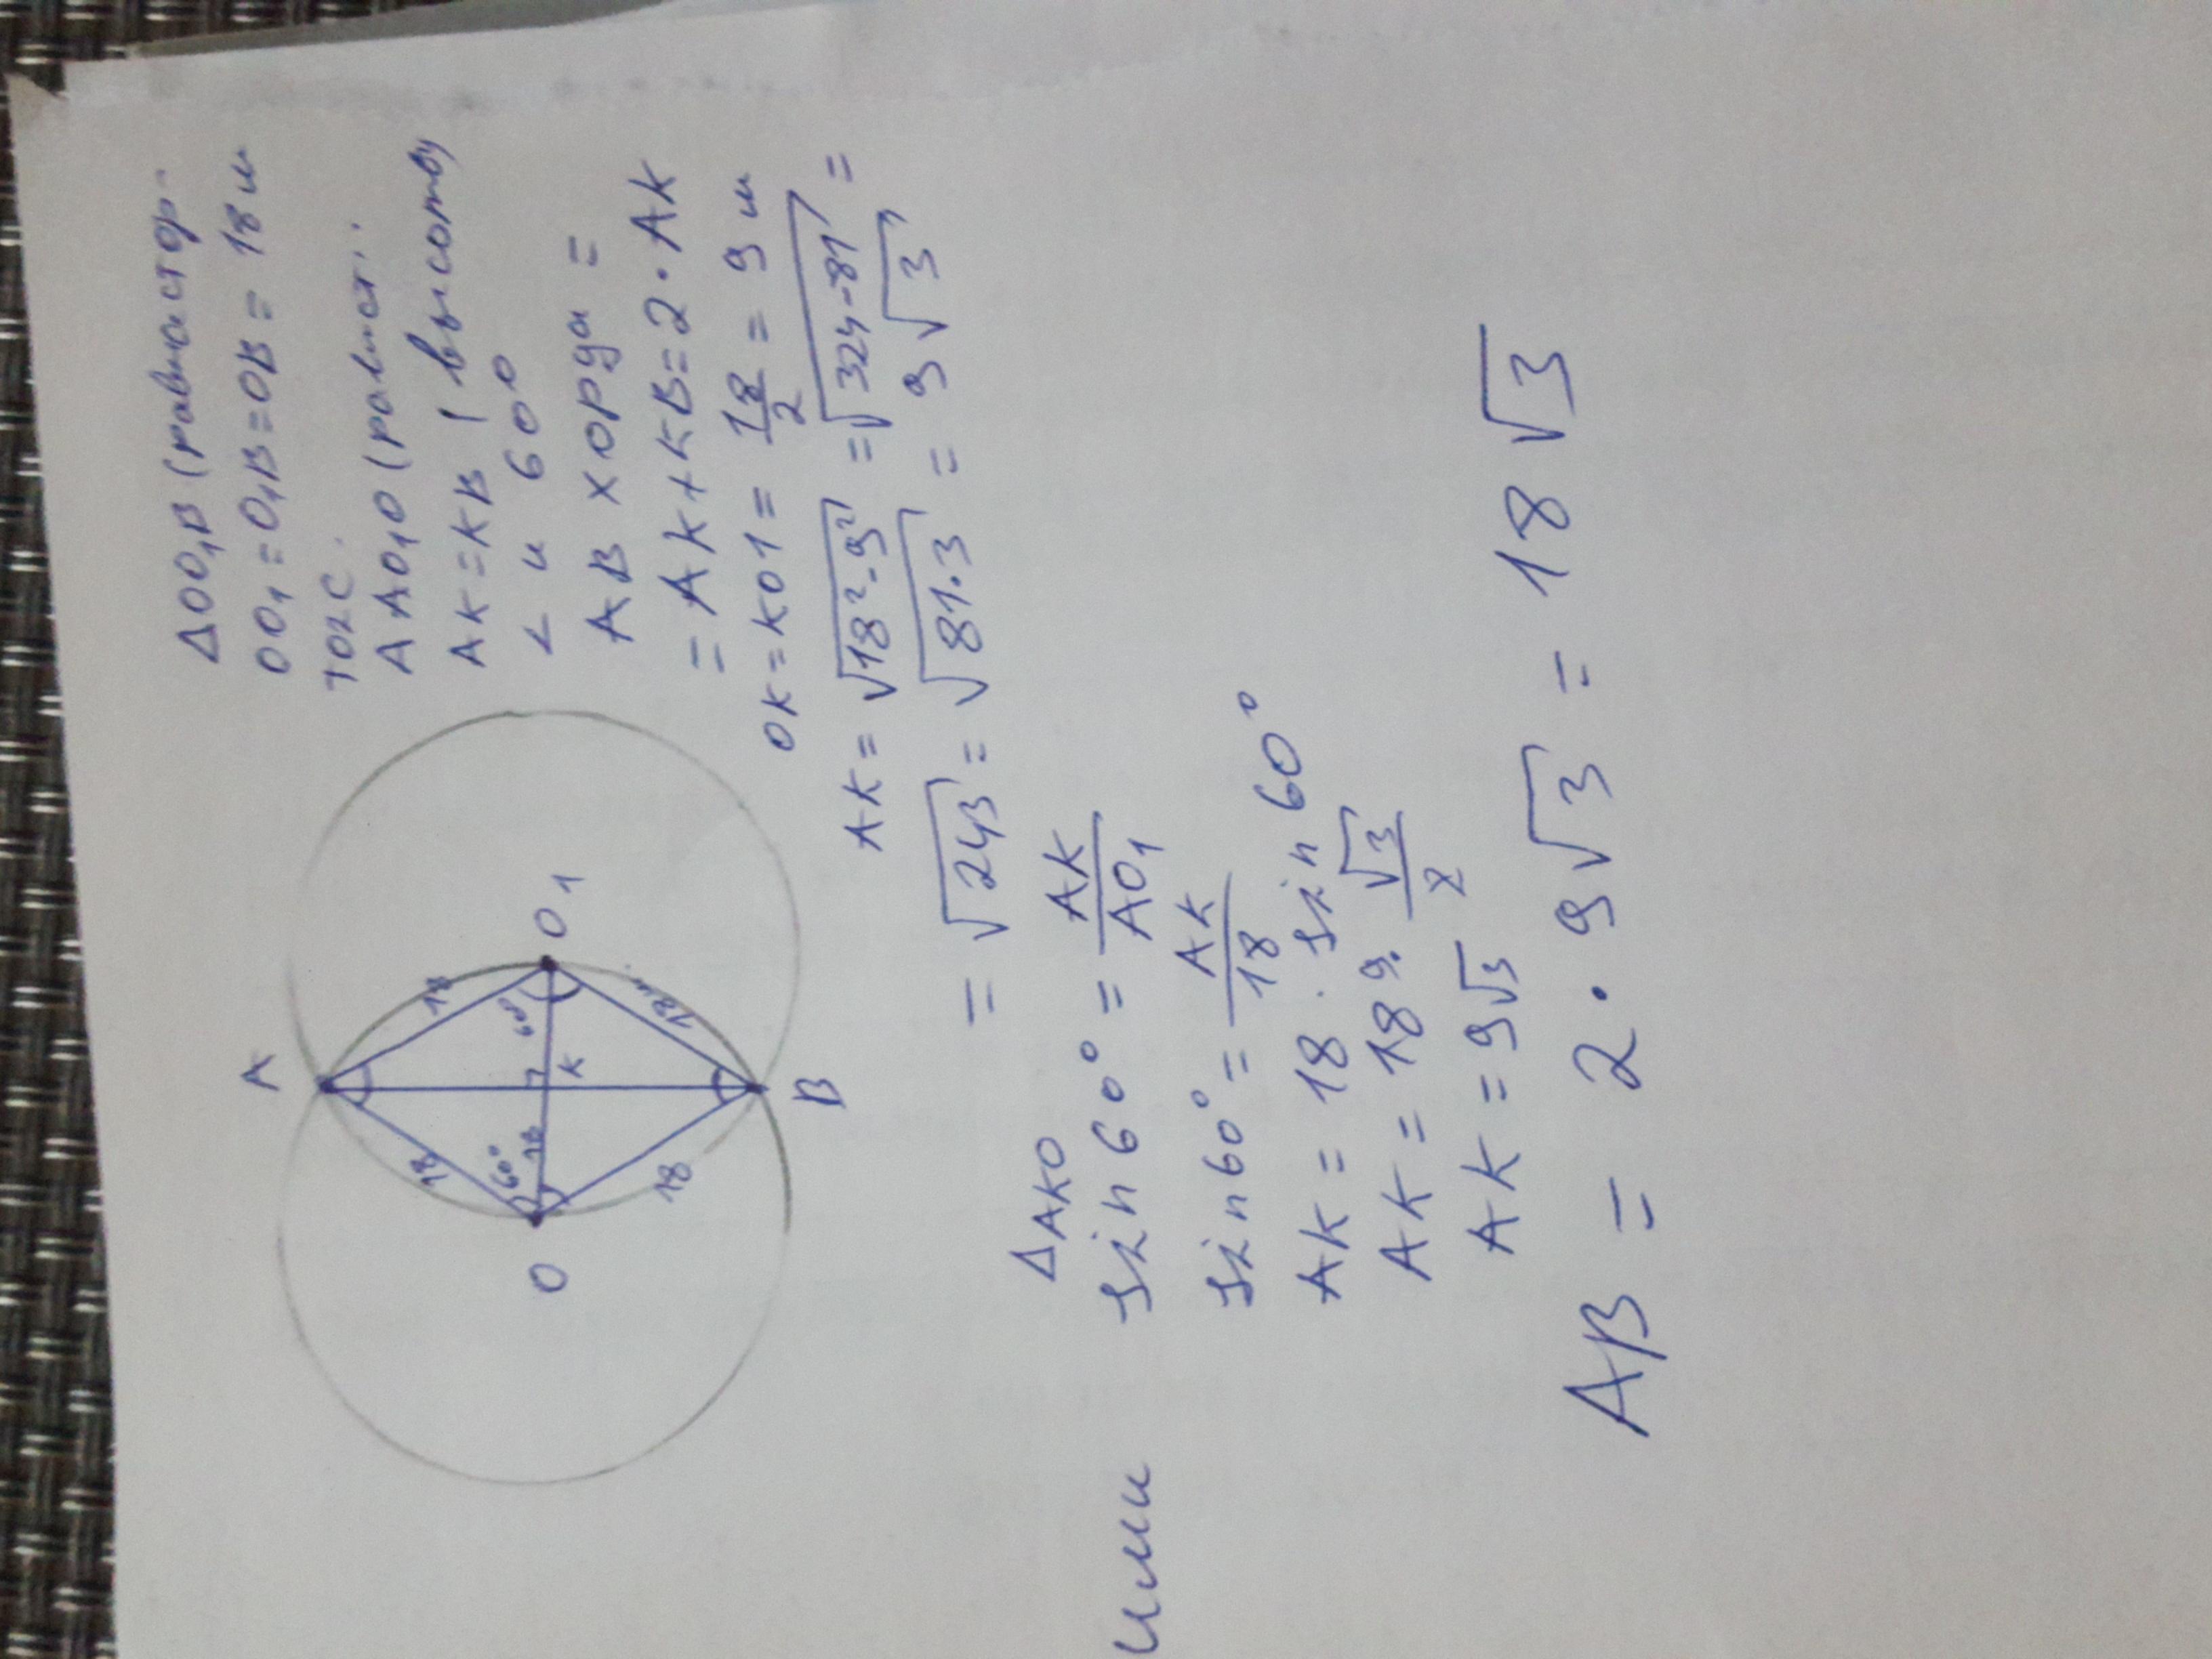 A
18
18
60°
60°
18
O
K
O1
18
18
B
Δ OO1B (равностор.
OO1 = O1B = OB = 18 и
A AO1O (равност.
AK = KB ( высоты
∠ и 60°
AB хорда =
= AK + KB = 2 · AK
OK = KO1 = 18/2 = 9 и
AK = √(18² - 9²) = √(324-81) =
= √243 = √(81·3) = 9√3
Δ AKO
или sin 60° = AK/AO1
sin 60° = AK/18
AK = 18 · sin 60°
AK = 18 9 · √3/2
AK = 9√3
AB = 2 · 9√3 = 18√3